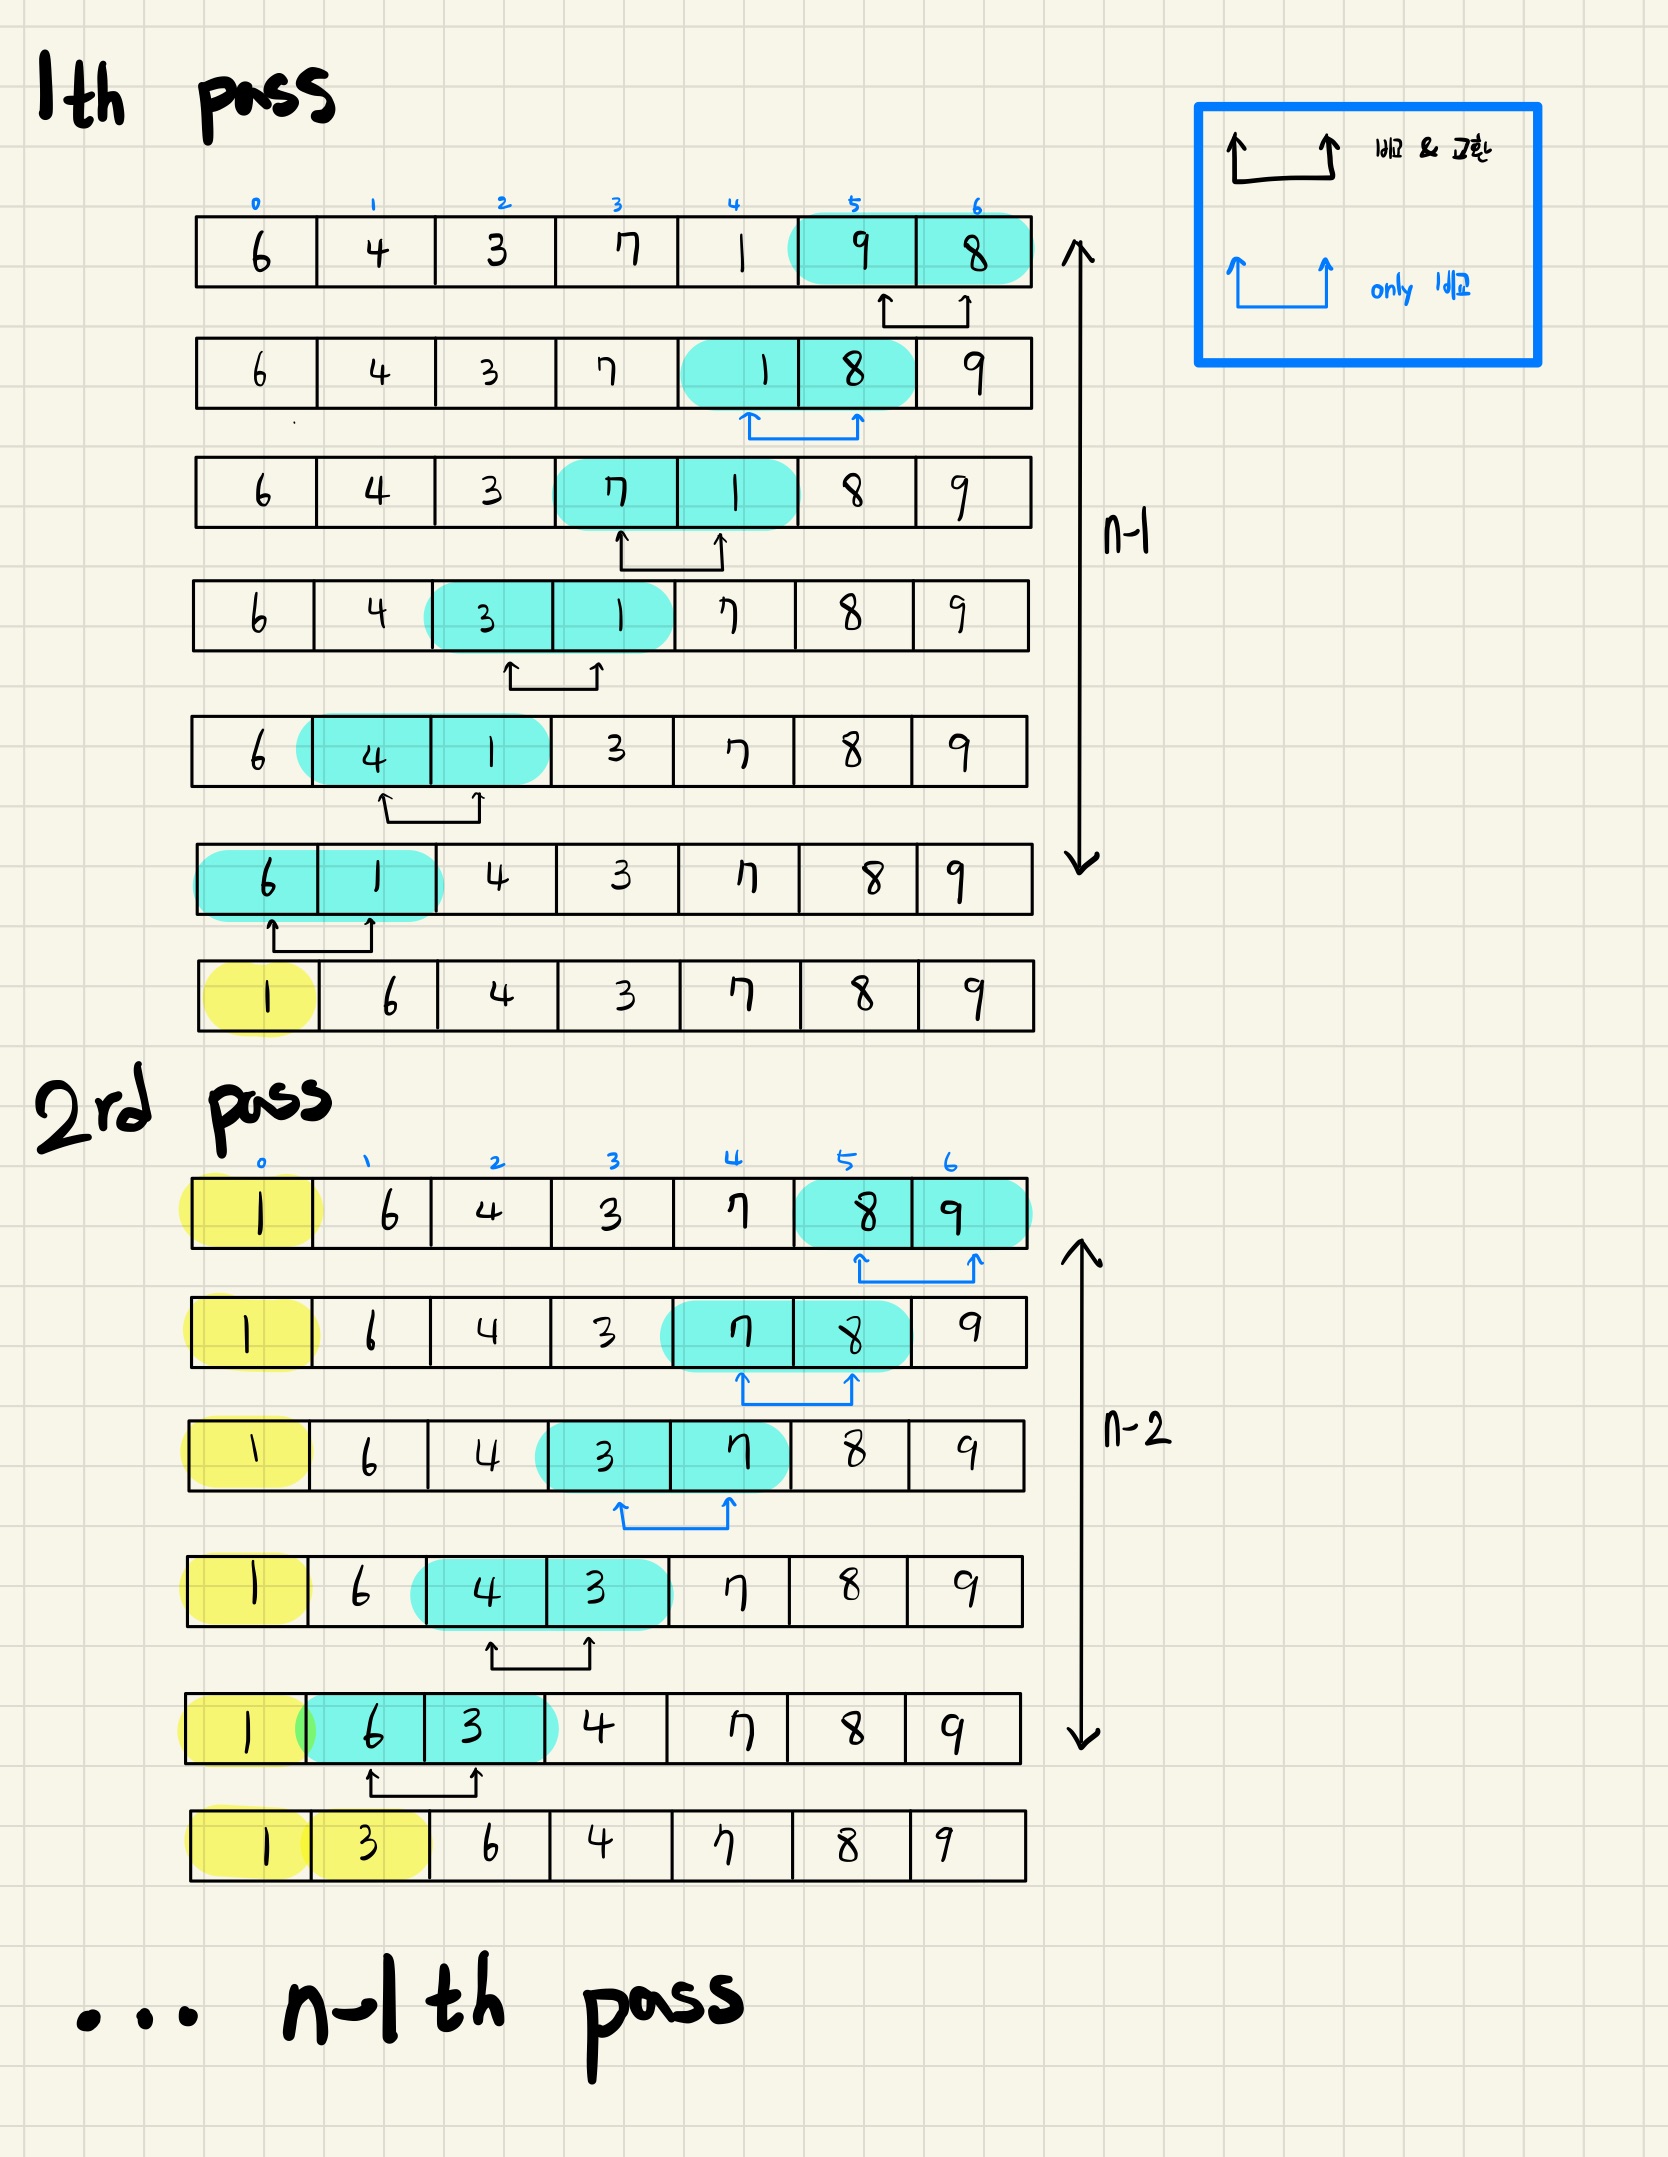 1th pass
비교 & 교환
0 1 2 3 4 5 6
6 4 3 7 1 9 8
only 비교
6 4 3 7 1 8 9
6 4 3 7 1 8 9
n-1
6 4 3 1 7 8 9
6 4 1 3 7 8 9
6 1 4 3 7 8 9
1 6 4 3 7 8 9
2rd pass
0 1 2 3 4 5 6
1 6 4 3 7 8 9
1 6 4 3 7 8 9
n-2
1 6 4 3 7 8 9
1 6 4 3 7 8 9
1 6 3 4 7 8 9
1 3 6 4 7 8 9
... n-1th pass